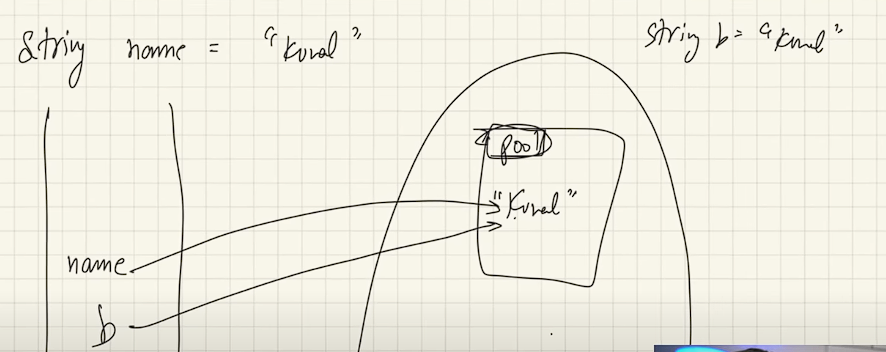 String name = "Kunal"
String b = "Kunal"
pool
"Kunal"
name
b